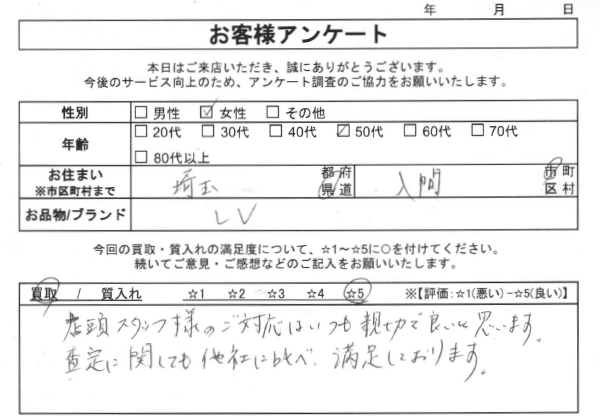 年 月 日
お客様アンケート
本日はご来店いただき、誠にありがとうございます。
今後のサービス向上のため、アンケート調査のご協力をお願いいたします。
性別 □ 男性 ☑ 女性 □ その他
年齢 □ 20代 □ 30代 □ 40代 ☑ 50代 □ 60代 □ 70代
□ 80代以上
お住まい 埼玉 都府 入間 市町
※市区町村まで 県道 区村
お品物/ブランド LV
今回の買取・質入れの満足度について、☆1~☆5に○を付けてください。
続いてご意見・ご感想などのご記入をお願いいたします。
買取 / 質入れ ☆1 ☆2 ☆3 ☆4 ☆5 ※【評価:☆1(悪い)-☆5(良い)】
店頭スタッフ様のご対応はいつも親切で良いと思います。
査定に関しても他社に比べ、満足しております。